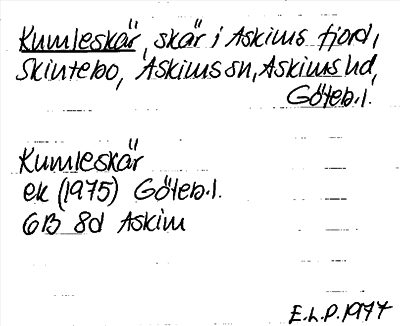 Kumleskär, skär i Askims fjord,
Skintebo, Askims sn, Askims hd,
Göteb.l.
Kumleskär
ek (1975) Göteb.l.
6B 8d Askim
E.L.P. 1977